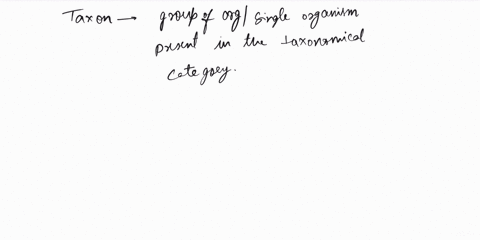 Taxon → group of org/single organism
present in the taxonomical
category.